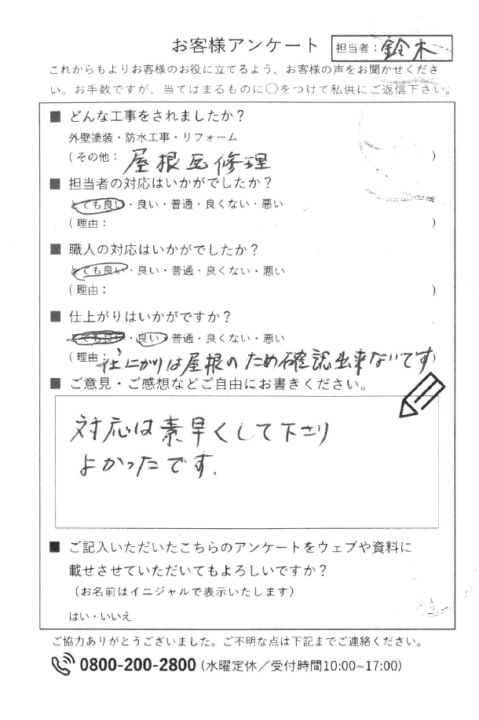 お客様アンケート 担当者：鈴木
これからもよりお客様のお役に立てるよう、お客様の声をお聞かせくださ
い。お手数ですが、当てはまるものに○をつけて私供にご返信下さい。
■ どんな工事をされましたか？
外壁塗装・防水工事・リフォーム
（その他：屋根瓦修理）
■ 担当者の対応はいかがでしたか？
とても良い・良い・普通・良くない・悪い
（理由：）
■ 職人の対応はいかがでしたか？
とても良い・良い・普通・良くない・悪い
（理由：）
■ 仕上がりはいかがですか？
とても良い・良い・普通・良くない・悪い
（理由：仕上がりは屋根のため確認出来ないです）
■ ご意見・ご感想などご自由にお書きください。
対応は素早くして下さり
よかったです.
■ ご記入いただいたこちらのアンケートをウェブや資料に
載せさせていただいてもよろしいですか？
（お名前はイニシャルで表示いたします）
はい・いいえ
ご協力ありがとうございました。ご不明な点は下記までご連絡ください。
0800-200-2800（水曜定休／受付時間10:00~17:00）